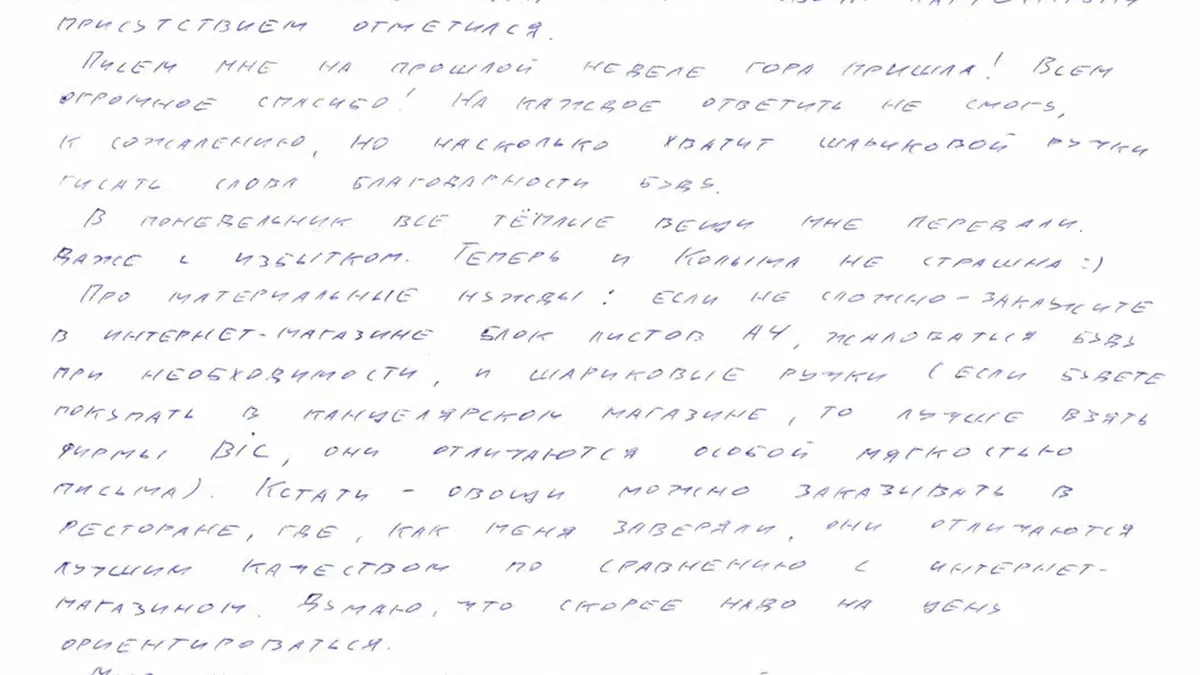 присутствием отметился.
Писем мне на прошлой неделе гора пришла! Всем
огромное спасибо! На каждое ответить не смогу,
к сожалению, но насколько хватит шариковой ручки
писать слова благодарности буду.
В понедельник все тёплые вещи мне передали.
Даже с избытком. Теперь и Колыма не страшна :)
Про материальные нужды: если не сложно - закажите
в интернет-магазине блок листов А4, жаловаться буду
при необходимости, и шариковые ручки (если будете
покупать в канцелярском магазине, то лучше взять
фирмы BiC, они отличаются особой мягкостью
письма). Кстати - овощи можно заказывать в
ресторане, где, как меня заверяли, они отличаются
лучшим качеством по сравнению с интернет-
магазином. Думаю, что скорее надо на цену
ориентироваться.